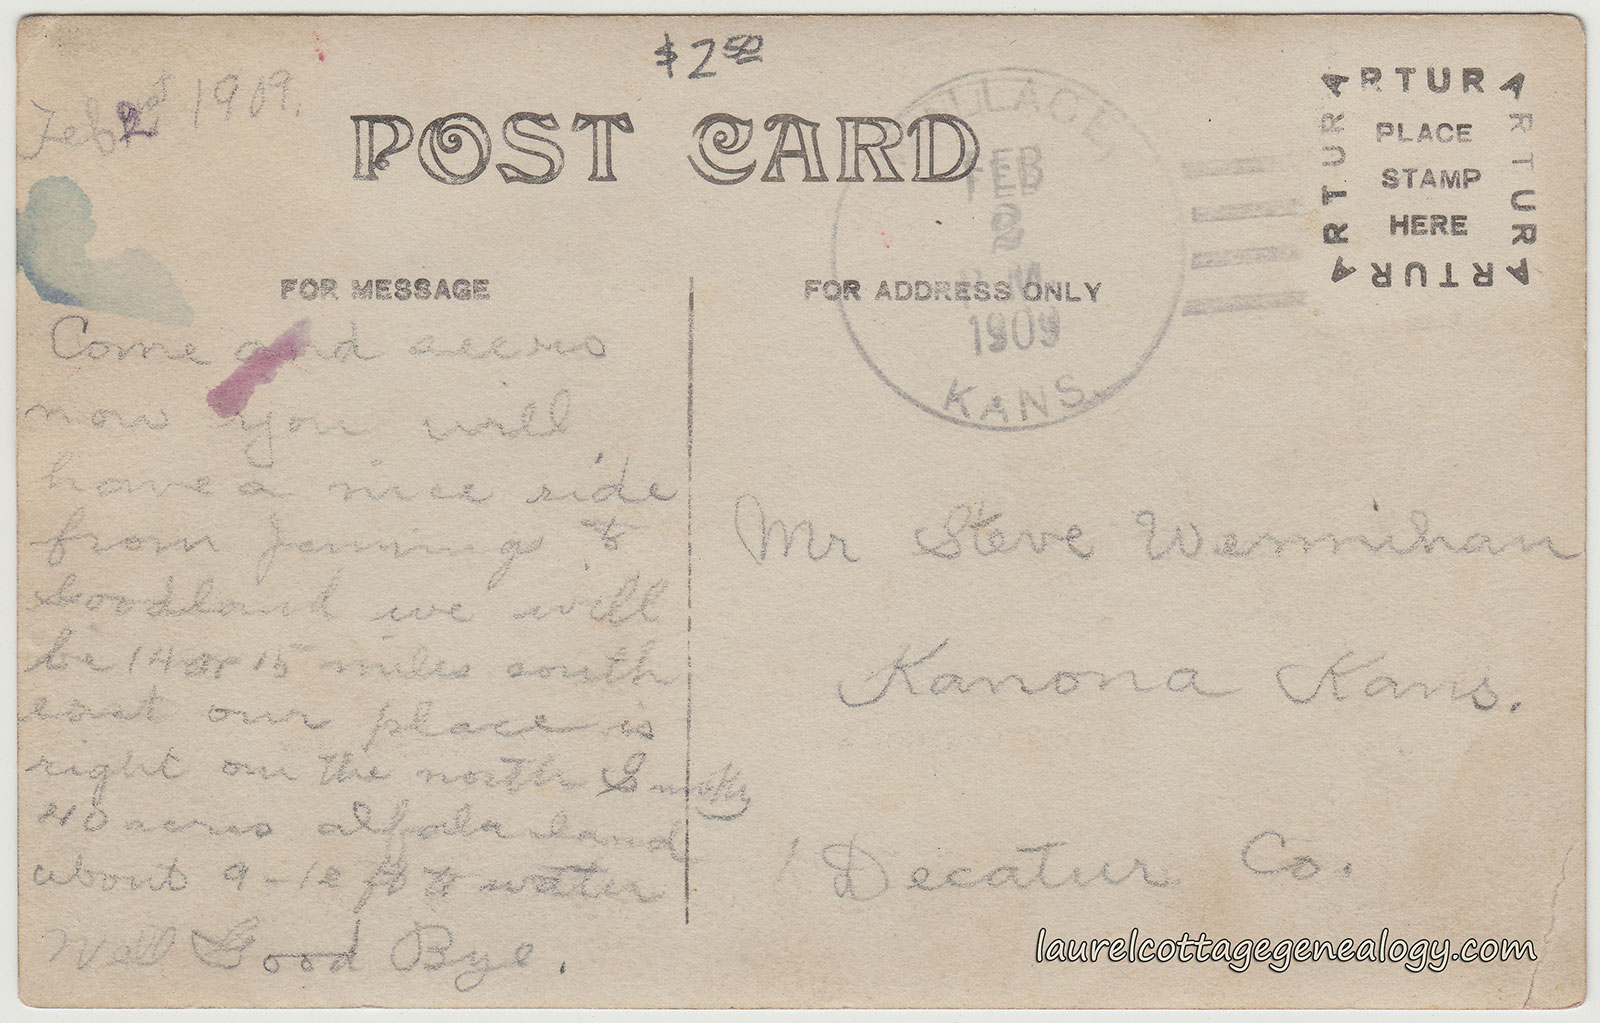 $2 50
Feb 2 1909.
POST CARD
ARTURA
ARTURA
ARTURA
ARTURA
PLACE
STAMP
HERE
FEB
2
1909
KANS.
FOR MESSAGE
FOR ADDRESS ONLY
Come and see
now you will
have a nice ride
from Jennings to
Goodland we will
be 14 or 15 miles south
east our place is
right on the north Smoky
40 acres alfala land
about 9-10 ft to water
Well Good Bye.
Mr Steve Wennihan
Kanona Kans.
Decatur Co.
laurelcottagegenealogy.com